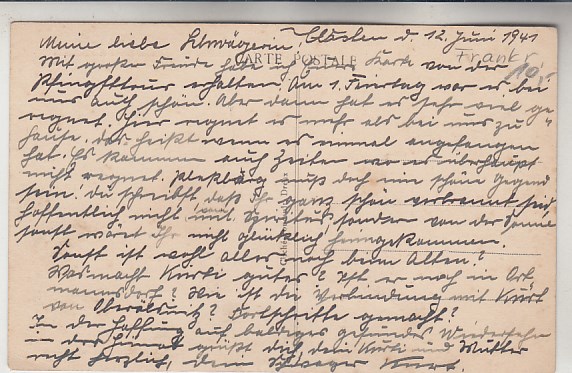 Meine liebe Schwägerin! Clasten d. 12. Juni 1941
CARTE POSTALE
Frankr
10,-
Mit großer Freude habe ich deine Karte von der
Pfingsttour erhalten. Am 1. Feiertag war es bei
uns auch schön. Aber dann hat es sehr viel ge-
regnet. Hier regnet es mehr als bei uns zu
hause, das heißt wenn es einmal angefangen
hat. Es kommen auch Zeiten wo es überhaupt
nicht regnet. muß doch eine schöne Gegend
sein. Du schreibst, daß Ihr ganz schön verbrannt seid,
hoffentlich nicht vom Spiritus, sondern von der Sonne
sonst wäret Ihr nicht glücklich heimgekommen.
Sonst ist wohl alles noch beim Alten?
Was macht Kurti gutes? Ist er noch in Ort-
mannsdorf? Wie ist die Verbindung mit Kurt
von Fortschritte gemacht?
In der Hoffnung auf baldiges gesundes Wiedersehn
in der Heimat grüßt dich dein Kurti und Mutter
recht herzlich, dein Schwager Kurt.